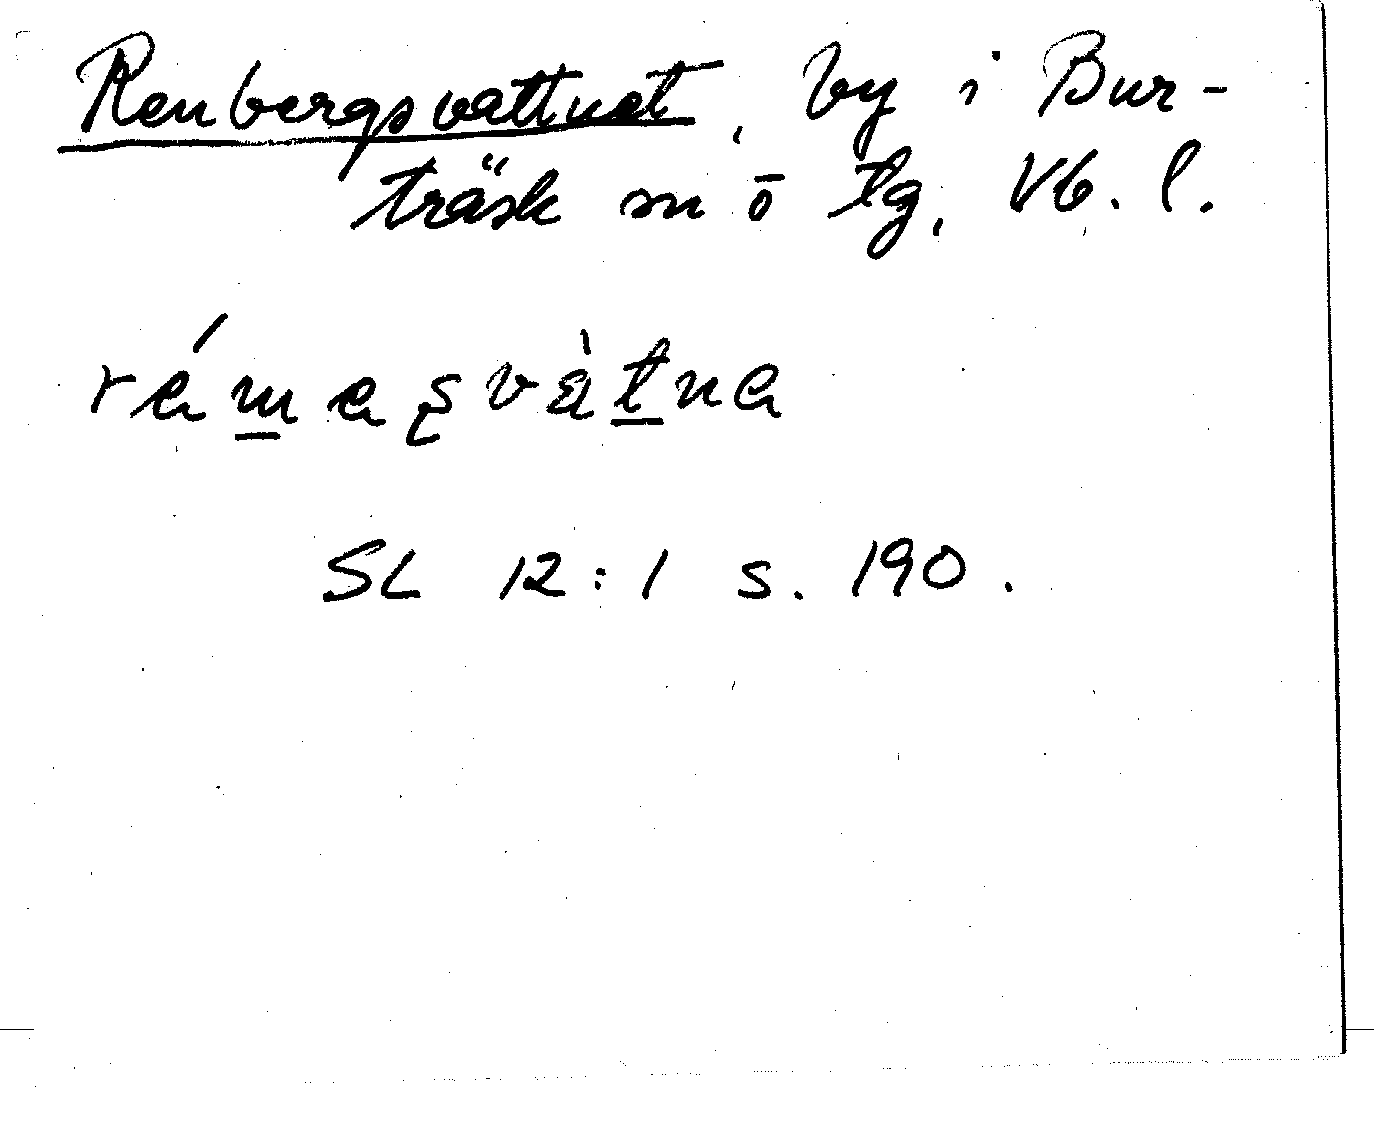 Renbergsvattnet, by i Bur-
träsk sn ō tg, Vb. l.
rémeʂvàtne
SL 12:1 s. 190.